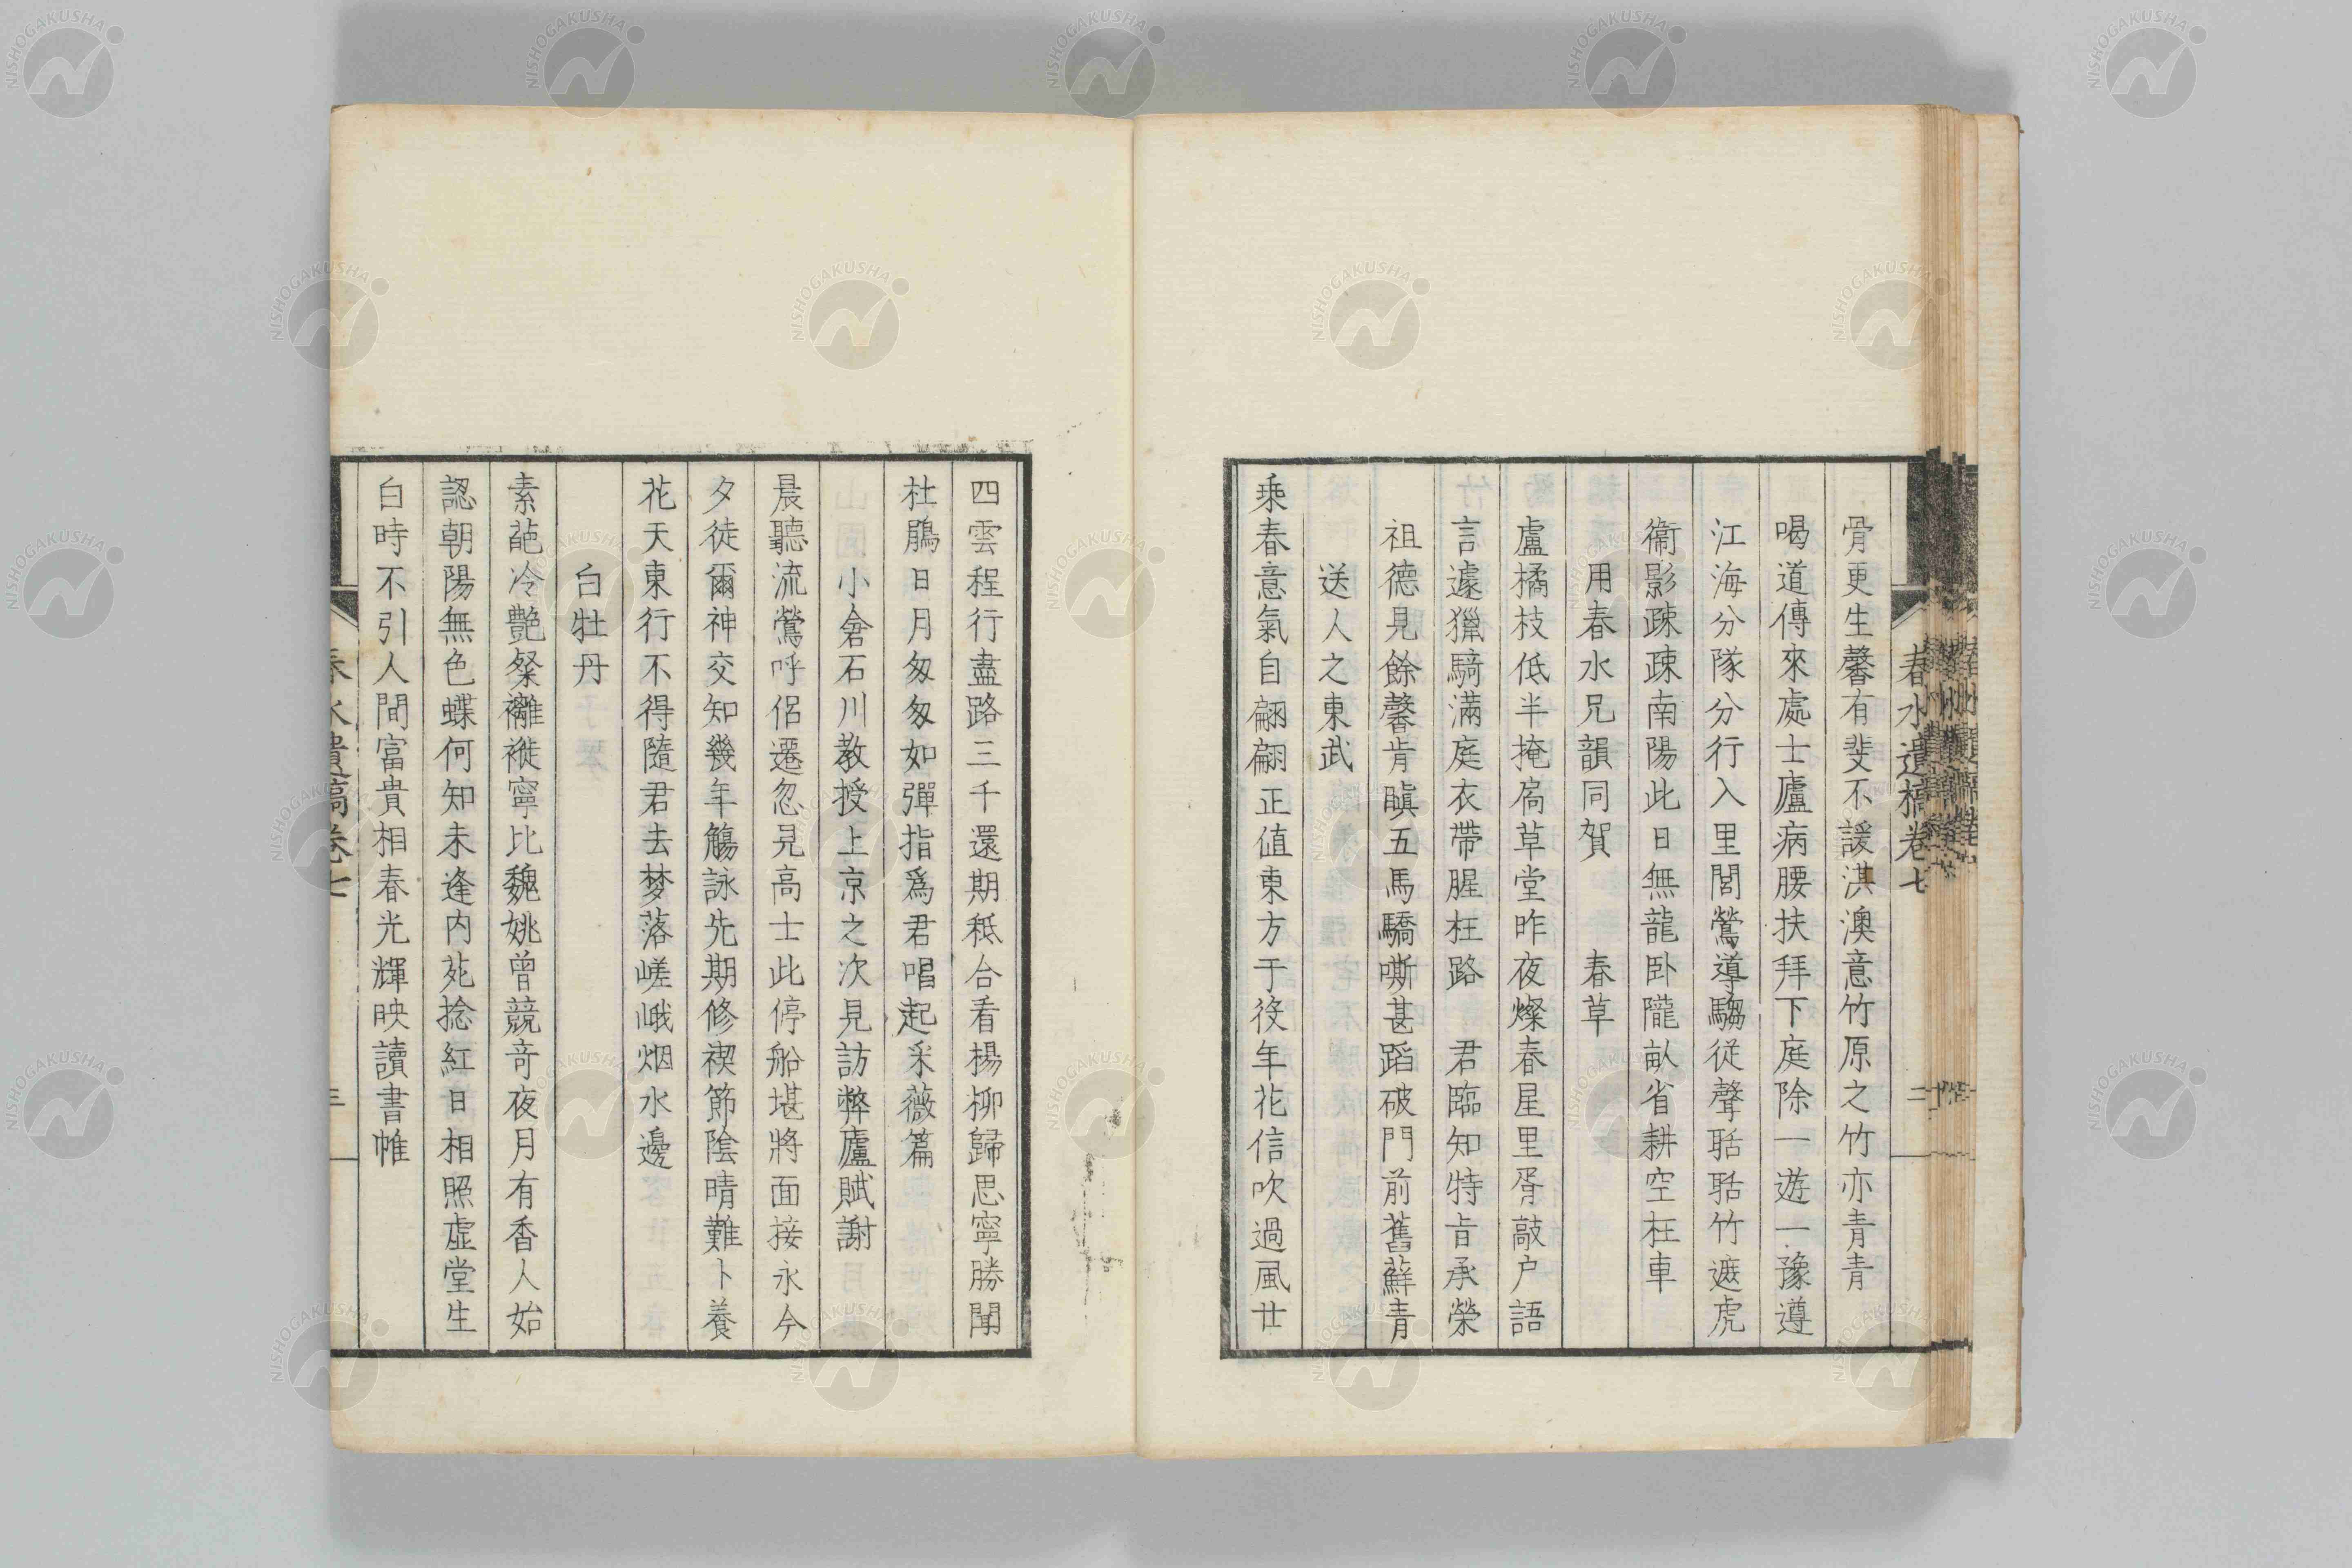 春水遺稿卷七
二
骨更生馨有斐不諼淇澳意竹原之竹亦青青
喝道傳來處士廬病腰扶拜下庭除一遊一豫遵
江海分隊分行入里閭鶯導騶從聲聒聒竹遮虎
衞影疎疎南陽此日無龍卧隴畝省耕空枉車
用春水兄韻同賀 春草
盧橘枝低半掩扃草堂昨夜燦春星里胥敲户語
言遽獵騎滿庭衣帶腥枉路 君臨知特旨承榮
祖德見餘馨肯瞋五馬驕嘶甚蹈破門前舊蘚青
送人之東武
乘春意氣自翩翩正值東方于役年花信吹過風廿
四雲程行盡路三千還期秖合看楊柳歸思寧勝聞
杜鵑日月匆匆如彈指爲君唱起采薇篇
小倉石川教授上京之次見訪弊廬賦謝
晨聽流鶯呼侶遷忽見高士此停船堪將面接永今
夕徒爾神交知幾年觴詠先期修禊節陰晴難卜養
花天東行不得隨君去梦落嵯峨烟水邊
白牡丹
素葩冷艷粲襹褷寧比魏姚曾競奇夜月有香人始
認朝陽無色蝶何知未逢内苑捻紅日相照虚堂生
白時不引人間富貴相春光輝映讀書帷
春水遺稿卷七
三
NISHOGAKUSHA